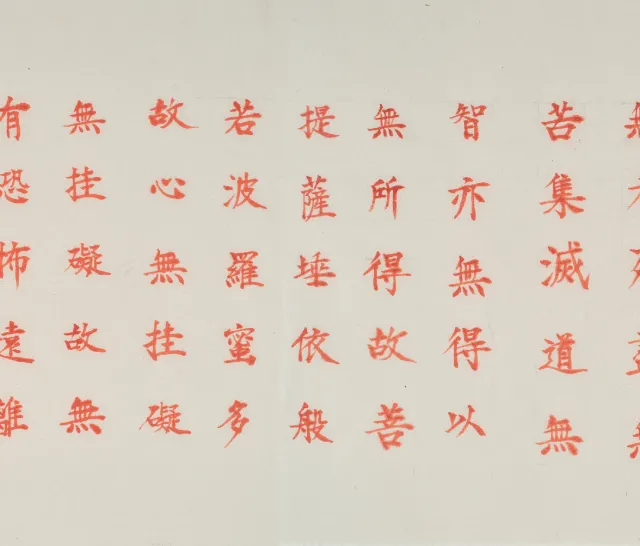 苦集滅道無
智亦無得以
無所得故菩
提薩埵依般
若波羅蜜多
故心無挂礙
無挂礙故無
有恐怖遠離